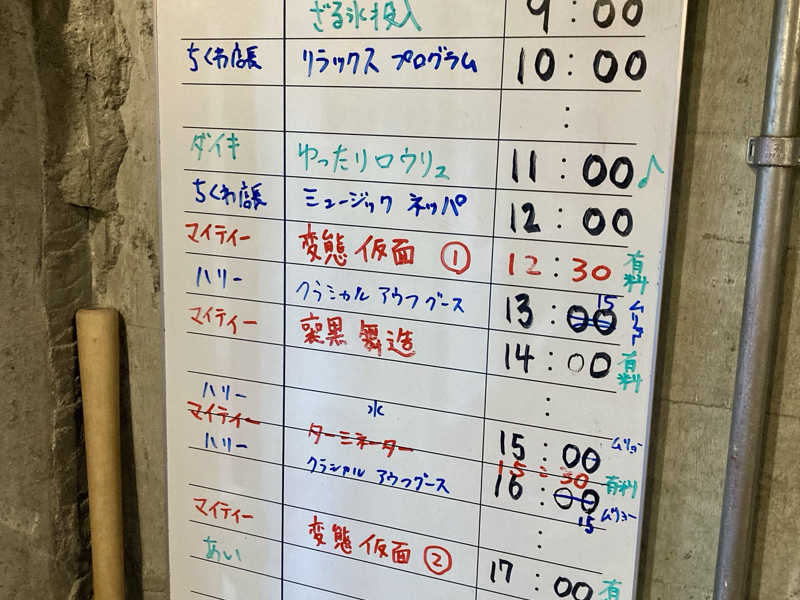 ざる氷投入 9:00
ちくわ店長 リラックス プログラム 10:00
:
ダイキ ゆったりロウリュ 11:00 ♪
ちくわ店長 ミュージック ネッパ 12:00
マイティー 変態仮面 ① 12:30 有料
ハリー クラシカル アウフグース 13:00 15 ムリョー
マイティー 14:00 有料
:
ハリー 氷
マイティー ターミネーター 15:00 ムリョー
15:30 有料
ハリー クラシカル アウフグース 16:00
15 ムリョー
:
マイティー 変態仮面 ②
あい 17:00 有